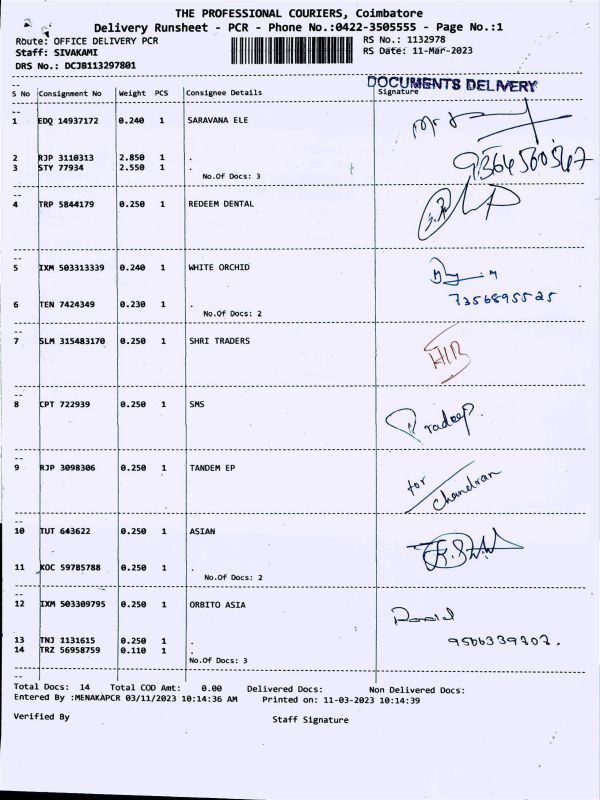 THE PROFESSIONAL COURIERS, Coimbatore
Delivery Runsheet - PCR - Phone No.:0422-3505555 - Page No.:1
Route: OFFICE DELIVERY PCR RS No.: 1132978
Staff: SIVAKAMI RS Date: 11-Mar-2023
DRS No.: DCJB113297801
DOCUMENTS DELIVERY
S No Consignment No Weight PCS Consignee Details Signature
1 EDQ 14937172 0.240 1 SARAVANA ELE
2 RJP 3110313 2.850 1 .
3 STY 77934 2.550 1 .
No.Of Docs: 3
9364560547
4 TRP 5844179 0.250 1 REDEEM DENTAL
5 IXM 503313339 0.240 1 WHITE ORCHID
7356895525
6 TEN 7424349 0.230 1 .
No.Of Docs: 2
7 SLM 315483170 0.250 1 SHRI TRADERS
8 CPT 722939 0.250 1 SMS
Pradeep.
9 RJP 3098306 0.250 1 TANDEM EP
for
Chandran
10 TUT 643622 0.250 1 ASIAN
11 KOC 59785788 0.250 1 .
No.Of Docs: 2
12 IXM 503309795 0.250 1 ORBITO ASIA
13 TNJ 1131615 0.250 1 .
14 TRZ 56958759 0.110 1 .
No.Of Docs: 3
Total Docs: 14 Total COD Amt: 0.00 Delivered Docs: Non Delivered Docs:
Entered By :MENAKAPCR 03/11/2023 10:14:36 AM Printed on: 11-03-2023 10:14:39
Verified By Staff Signature